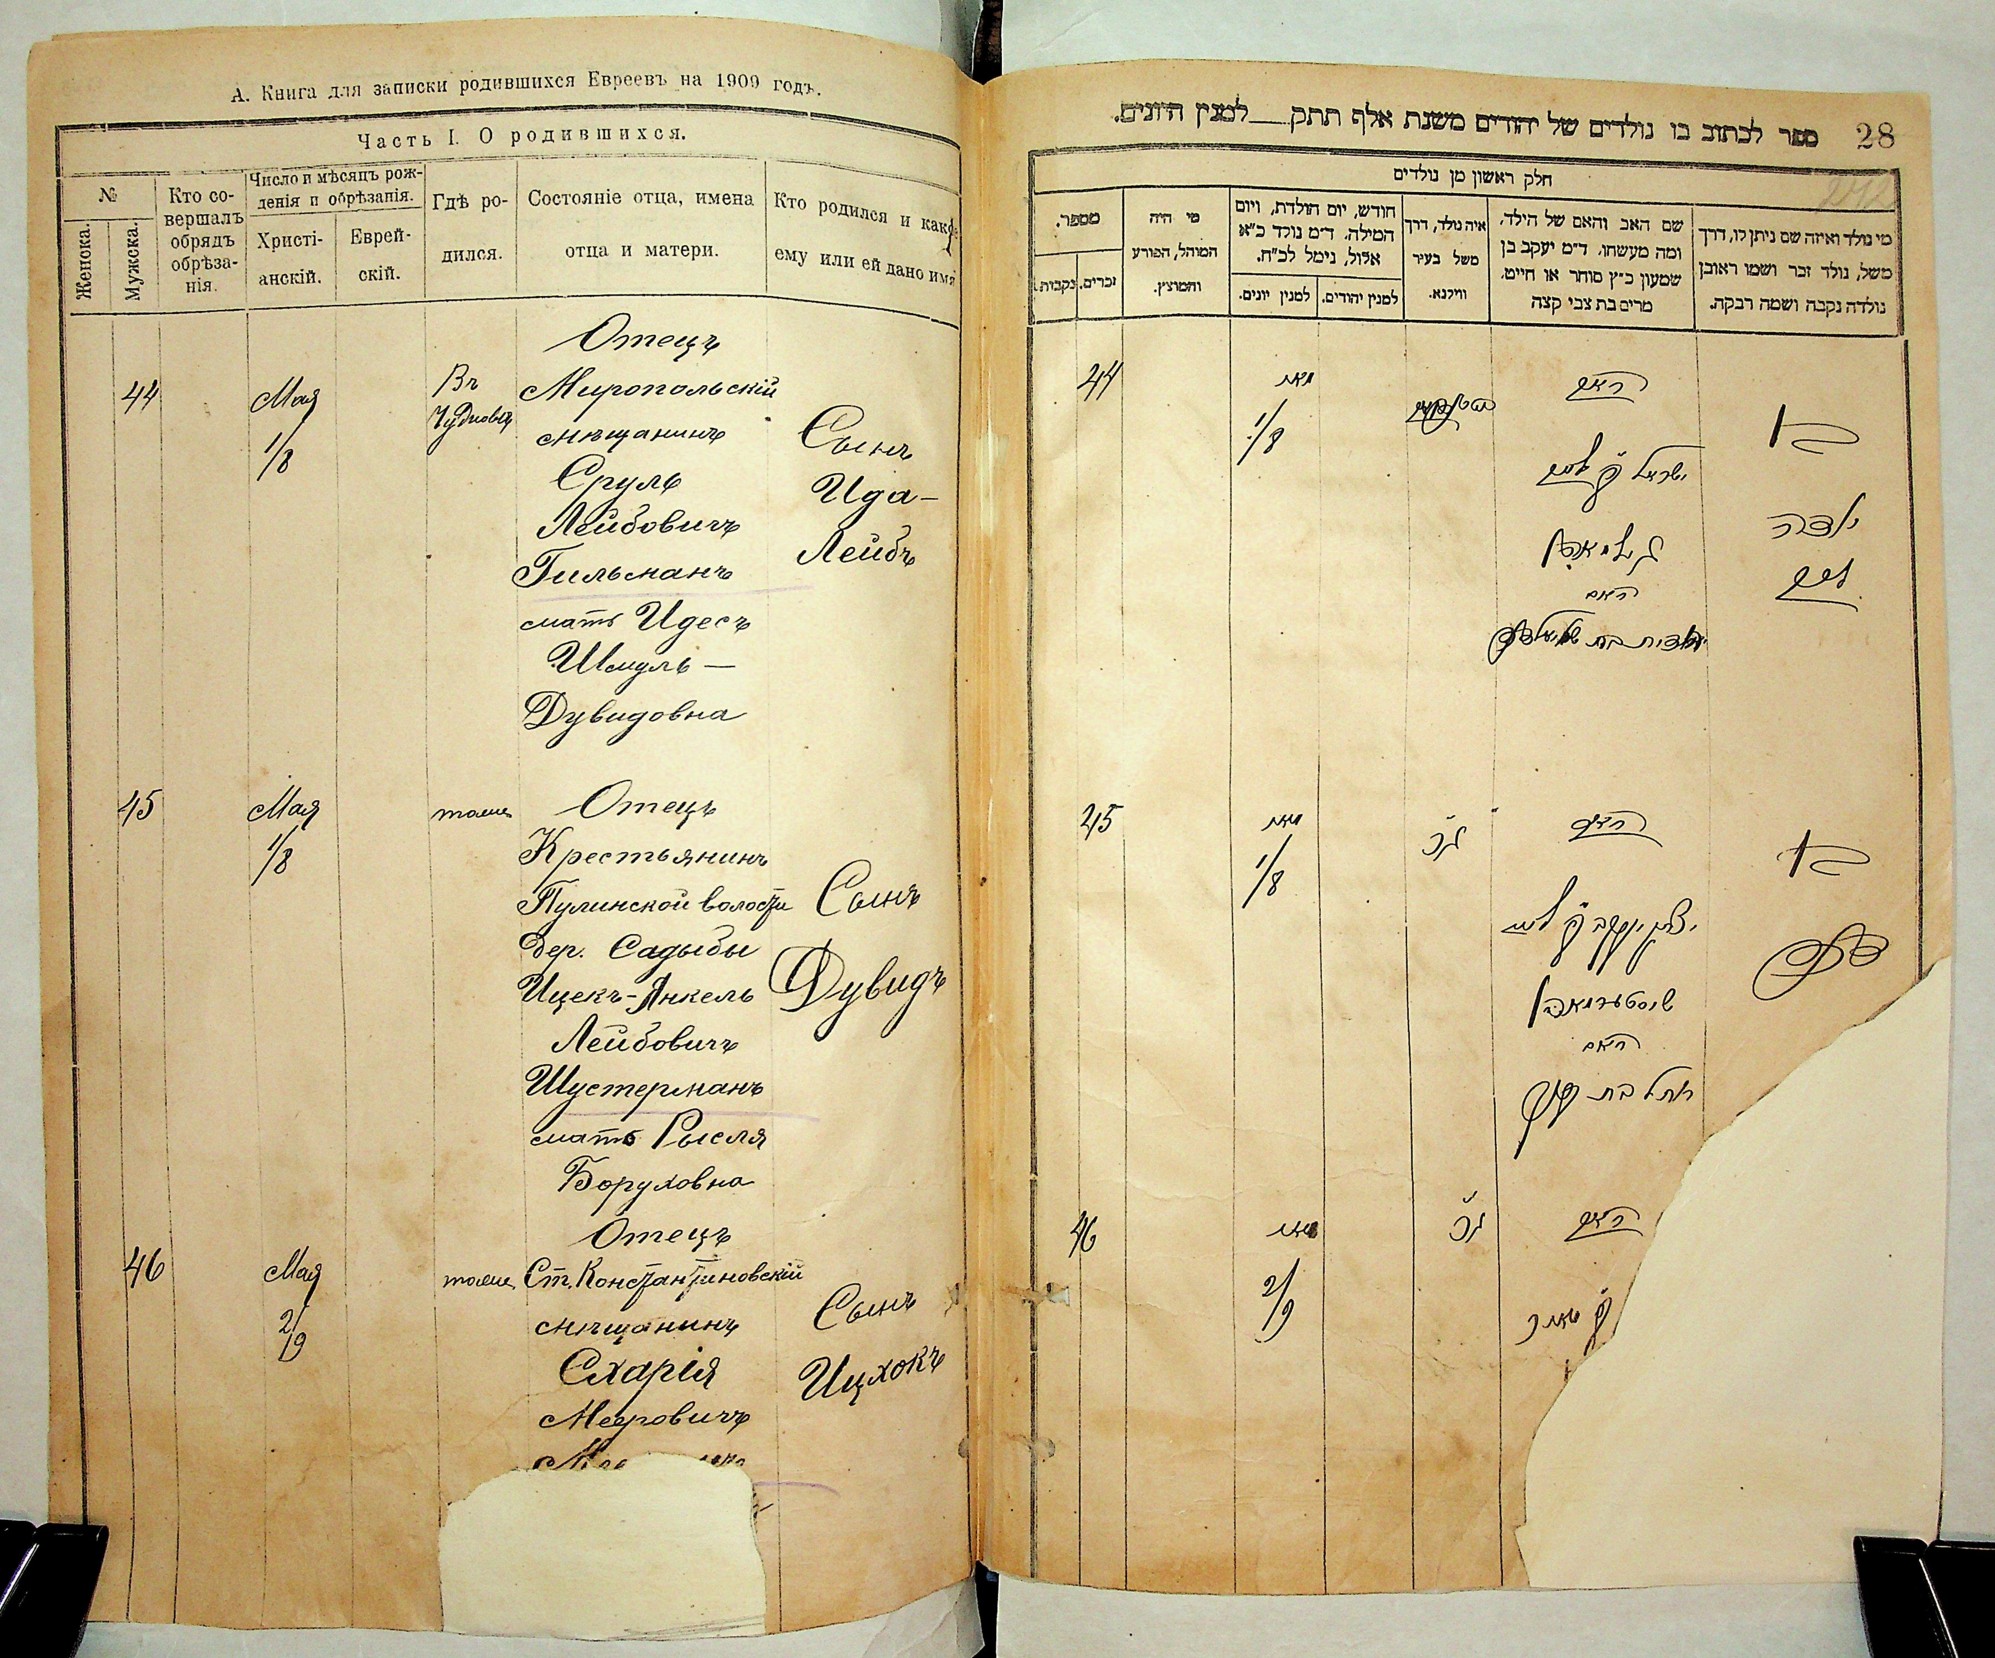 А. Книга для записки родившихся Евреевъ на 1909 годъ.
Часть I. О родившихся.
№
Женска.
Мужска.
Кто со-
вершалъ
обрядъ
обрѣза-
нія.
Число и мѣсяцъ рож-
денія и обрѣзанія.
Христі-
анскій.
Еврей-
скій.
Гдѣ ро-
дился.
Состояніе отца, имена
отца и матери.
Кто родился и како
ему или ей дано имя
44
Мая
1/8
Въ
Чудновѣ
Отецъ
Миропольскій
мѣщанинъ
Сруль
Лейбовичъ
Гильманъ
мать Идесъ
Шмуль—
Дувидовна
Сынъ
Ида-
Лейбъ
45
Мая
1/8
тоже
Отецъ
Крестьянинъ
Пулинской волости
дер. Садыбы
Ицекъ-Янкель
Лейбовичъ
Шустерманъ
мать Рысля
Боруховна
Сынъ
Дувидъ
46
Мая
2/9
тоже
Отецъ
Ст. Константиновскій
мѣщанинъ
Схарія
Меровичъ
Сынъ
Ицхокъ
28
ספר לכתוב בו נולדים של יהודים משנת אלף תתק למנין היונים.
חלק ראשון מן נולדים
מי נולד ואיזה שם ניתן לו, דרך
משל, נולד זכר ושמו ראובן
נולדה נקבה ושמה רבקה.
שם האב והאם של הילד,
ומה מעשהו. ד״מ יעקב בן
שמעון כ״ץ סוחר או חייט.
מרים בת צבי קצה
איה נולד, דרך
משל בעיר
ווילנא.
חודש, יום הולדת, ויום
המילה. ד״מ נולד כ״א
אלול, נימל לכ״ח.
למנין יהודים.
למנין יונים.
מי היה
המוהל, הפורע
והמוצץ.
מספר.
זכרים.
נקבות.
44
מאי
1/8
האב
ישראל
האם
בן
יודא
ליב
45
מאי
1/8
האב
יצחק יעקב
שוסטערמאן
האם
רחל בת
בן
דוד
46
מאי
2/9
האב